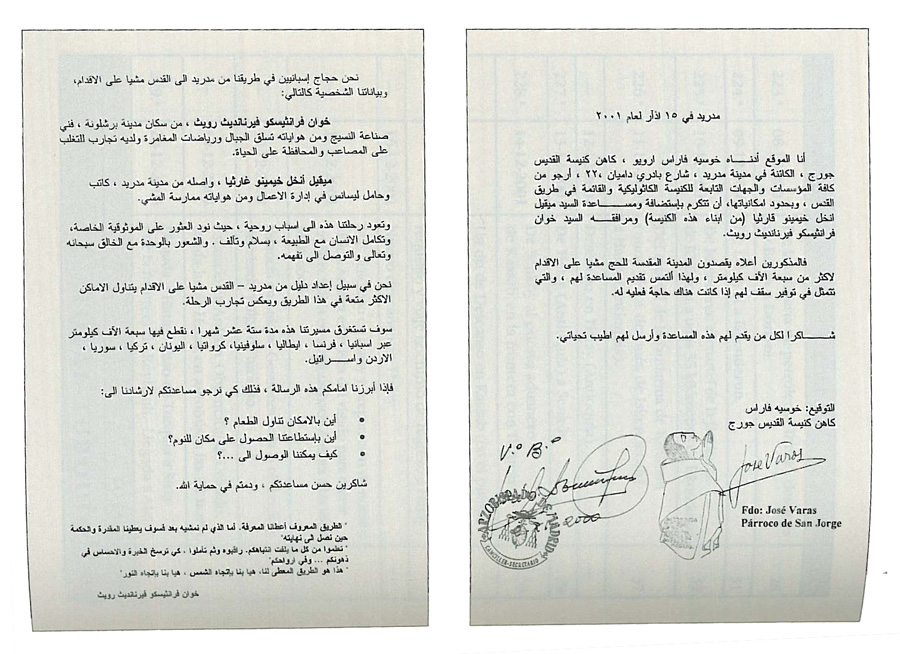 نحن حجاج إسبانيين في طريقنا من مدريد الى القدس مشيا على الاقدام،
وبياناتنا الشخصية كالتالي:
خوان فرانثيسكو فيرنانديث رويث ، من سكان مدينة برشلونة ، فني
صناعة النسيج ومن هواياته تسلق الجبال ورياضات المغامرة ولديه تجارب للتغلب
على المصاعب والمحافظة على الحياة.
ميقيل أنخل خيمينو غارثيا ، واصله من مدينة مدريد ، كاتب
وحامل ليسانس في إدارة الاعمال ومن هواياته ممارسة المشي.
وتعود رحلتنا هذه الى اسباب روحية ، حيث نود العثور على الموثوقية الخاصة،
وتكامل الانسان مع الطبيعة ، بسلام وتآلف . والشعور بالوحدة مع الخالق سبحانه
وتعالى والتوصل الى تفهمه.
نحن في سبيل إعداد دليل من مدريد – القدس مشيا على الاقدام يتناول الاماكن
الاكثر متعة في هذا الطريق ويعكس تجارب الرحلة.
سوف تستغرق مسيرتنا هذه مدة ستة عشر شهرا ، نقطع فيها سبعة الآف كيلومتر
عبر اسبانيا ، فرنسا ، ايطاليا ، سلوفينيا، كرواتيا ، اليونان ، تركيا ، سوريا ،
الاردن واســـرائيل.
فإذا أبرزنا امامكم هذه الرسالة ، فذلك كي نرجو مساعدتكم لارشادنا الى:
• أين بالامكان تناول الطعام ؟
• أين بإستطاعتنا الحصول على مكان للنوم؟
• كيف يمكننا الوصول الى ...؟
شاكرين حسن مساعدتكم ، ودمتم في حماية الله.
" الطريق المعروف أعطانا المعرفة. أما الذي لم نمشيه بعد فسوف يعطينا المقدرة والحكمة
حين نصل الى نهايته"
" تعلموا من كل ما يلفت انتباهكم. راقبوه وثم تأملوا ، كي ترسخ الخبرة والاحساس في
ذهونكم ... وفي ارواحكم"
" هذا هو الطريق المعطى لنا، هيا بنا بإتجاه الشمس ، هيا بنا بإتجاه النور"
خوان فرانثيسكو فيرنانديث رويث
مدريد في ١٥ اذار لعام ٢٠٠١
أنا الموقع أدنـــاه خوسيه فاراس ارويو ، كاهن كنيسة القديس
جورج ، الكائنة في مدينة مدريد ، شارع بادري داميان ،٢٢ ، أرجو من
كافة المؤسسات والجهات التابعة للكنيسة الكاثوليكية والقائمة في طريق
القدس ، وبحدود امكانياتها، أن تتكرم بإستضافة ومســـاعدة السيد ميقيل
انخل خيمينو قارثيا (من ابناء هذه الكنيسة) ومرافقـــه السيد خوان
فرانثيسكو فيرنانديث رويث.
فالمذكورين أعلاه يقصدون المدينة المقدسة للحج مشيا على الاقدام
لاكثر من سبعة الآف كيلومتر ، ولهذا ألتمس تقديم المساعدة لهم ، والتي
تتمثل في توفير سقف لهم إذا كانت هناك حاجة فعليه له.
شـــاكرا لكل من يقدم لهم هذه المساعدة وأرسل لهم اطيب تحياتي.
التوقيع: خوسيه فاراس
كاهن كنيسة القديس جورج
V.º B.º
José Varas
ARZOBISPADO DE MADRID
CANCILLER-SECRETARIO
2000
Fdo: José Varas
Párroco de San Jorge